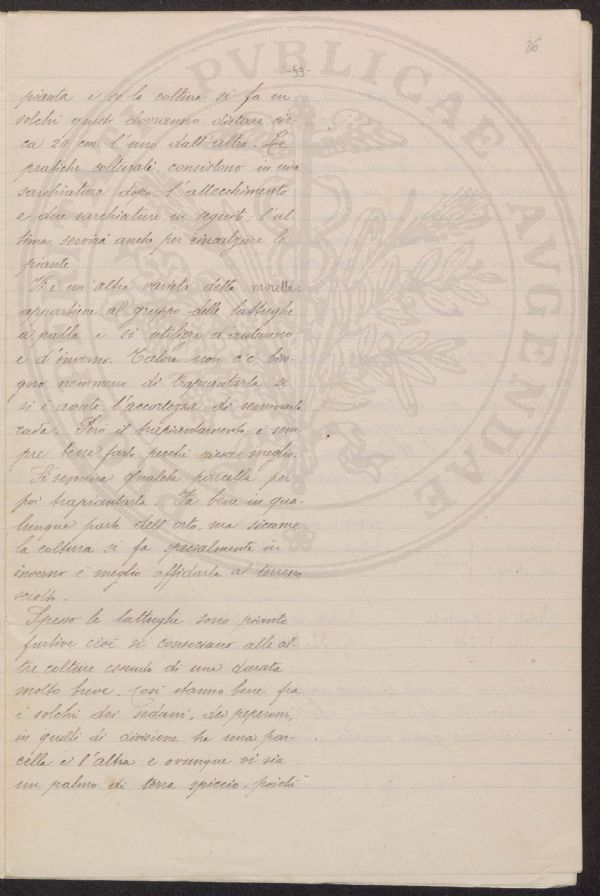 26
-53-
pianta e se la coltura si fa in
solchi questi dovranno distare cir-
ca 20 cm. l'uno dall'altro. Le
pratiche colturali consistono in una
sarchiatura dopo l'attecchimento
e due sarchiature in seguito; l'ul-
tima servirà anche per rincalzare le
piante
Vi è un altra varietà detta moretta:
appartiene al gruppo delle lattughe
a palla e si utilizza d'autunno
e d'inverno. Talora non c'è biso-
gno nemmeno di trapiantarla se
si è avuta l'accortezza di seminarla
rada. Però il trapiantamento è sem
pre bene farlo perchè riesce meglio.
Si semina qualche porcella per
poi trapiantarla. Va bene in qua-
lunque parte dell'orto, ma siccome
la coltura si fa specialmente in
inverno è meglio affidarla al terreno
sciolto.
Spesso le lattughe sono piante
furtive cioè si consociano alle al-
tre colture essendo di una durata
molto breve. Così stanno bene fra
i solchi dei sedani, dei peperoni,
in quelli di divisione tra una por-
cella e l'altra e ovunque vi sia
un palmo di terra spiccio, poichè
PVBLICAE
AVGENDAE